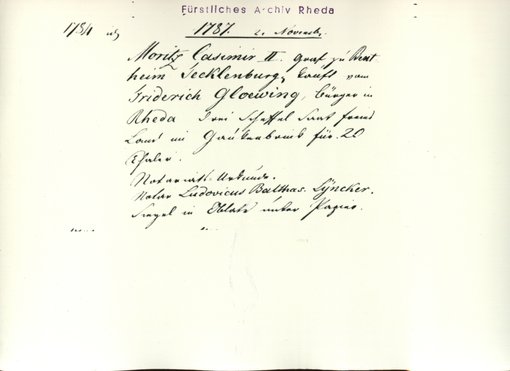 Fürstliches Archiv Rheda
1787. 2. Novemb.
Moritz Casimir II. Graf zu Bent
heim Tecklenburg, kauft vom
Friderich Gloewing, Bürger in
Rheda drei Scheffel Saat freies
Land im für 20
Thaler.
Notariats-Urkunde.
Notar Ludovicus Balthas. Lyncker.
Siegel in Oblate unter Papier.